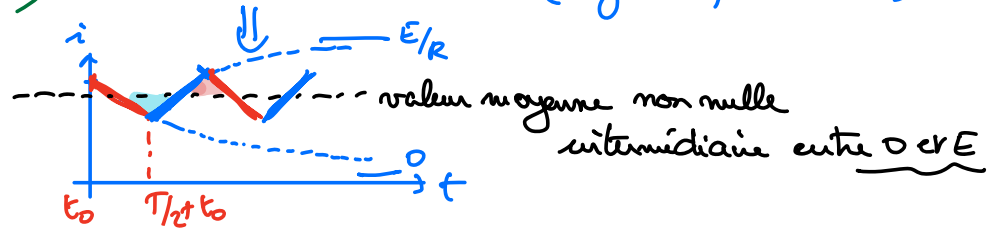 i
E/R
valeur moyenne non nulle
intermédiaire entre 0 et E
0
t
t₀
T/2+t₀